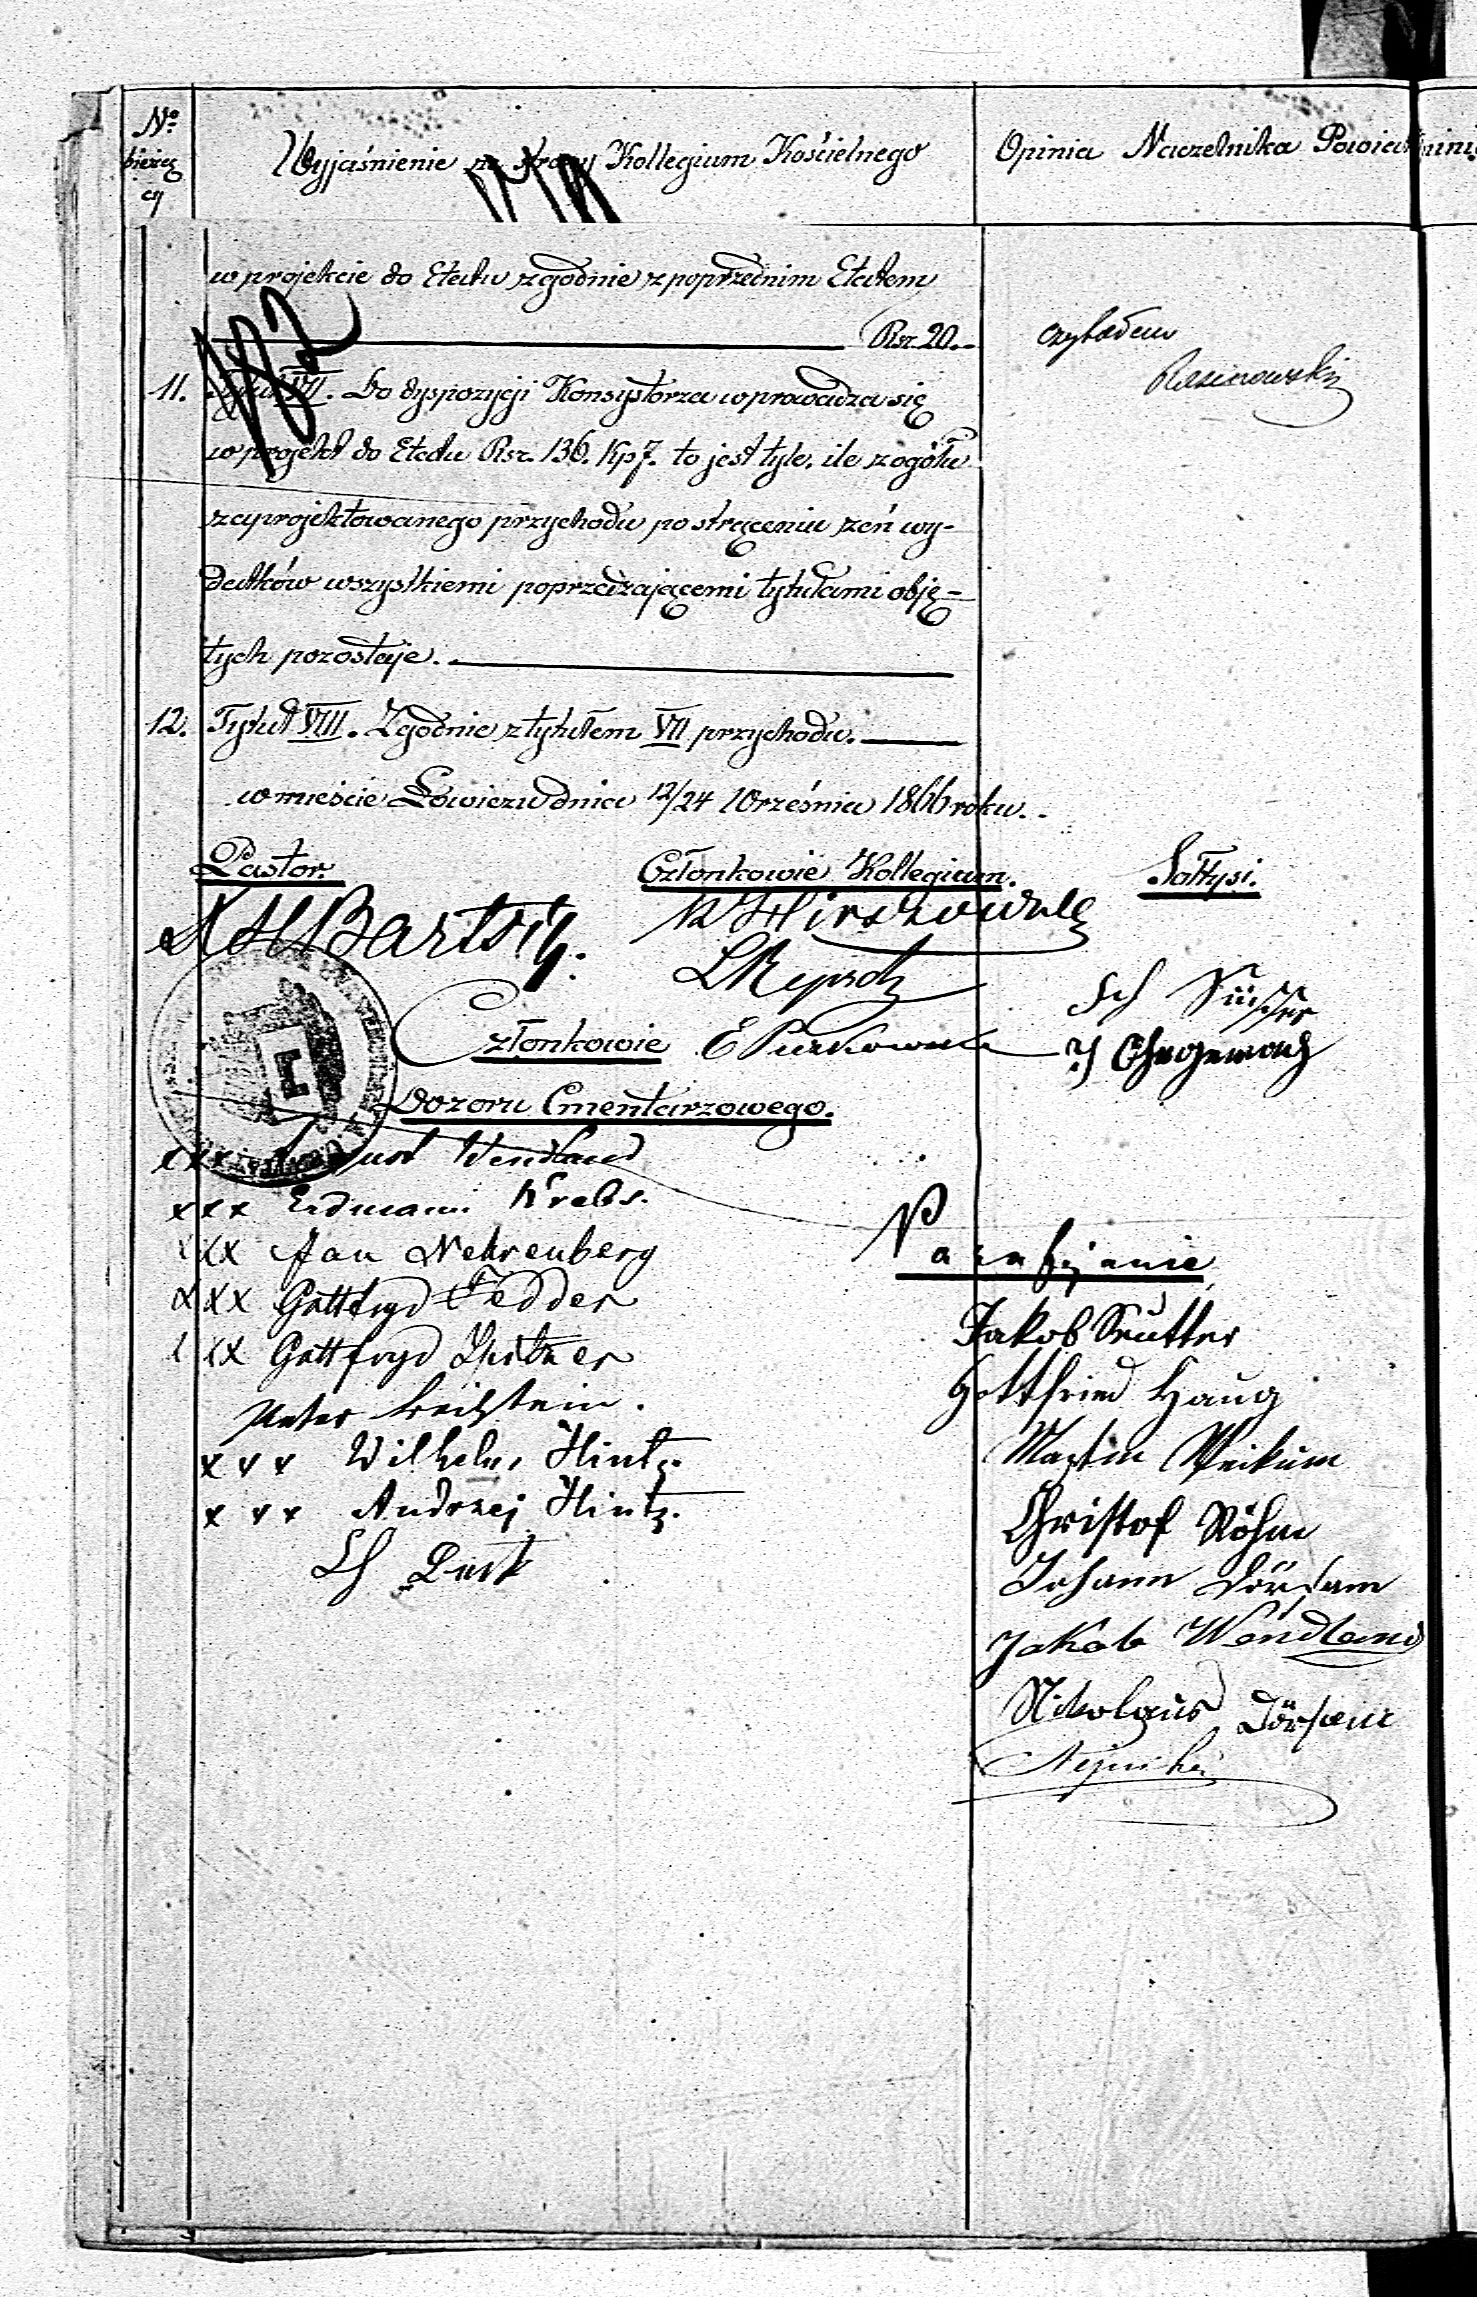 No
bieżą
cy
Wyjaśnienie ze strony Kollegium Kościelnego
Opinia Naczelnika Powiatu
w projekcie do Etatu zgodnie z poprzednim Etatem
Rsr. 20.
czytałem
11. Tytuł VII. Do dyspozycji Konsystorza wprowadza się
w projekt do Etatu Rsr. 136. Kp 7. to jest tyle, ile z ogółu
zaprojektowanego przychodu po strąceniu zeń wy-
datków wszystkiemi poprzedzającemi tytułami obję-
tych pozostaje.
12. Tytuł VIII. Zgodnie z tytułem VII przychodu.
w mieście Łowiczu dnia 12/24 Września 1866 roku.
Pastor.
Członkowie Kollegium.
Sołtysi.
Bartsch.
Członkowie
Dozoru Cmentarzowego.
xxx Wendland
xxx Erdmann Krebs.
xxx Jan Nehrenberg
xxx Gottfryd Fedder
xxx Gottfryd
xxx Wilhelm Hintz.
xxx Andrzej Hintz.
Parafijanie
Jakob Seutter
Gottfried Haug
Martin
Christof Röhm
Johann Dörsam
Jakob Wendland
Nikolaus Dörsam